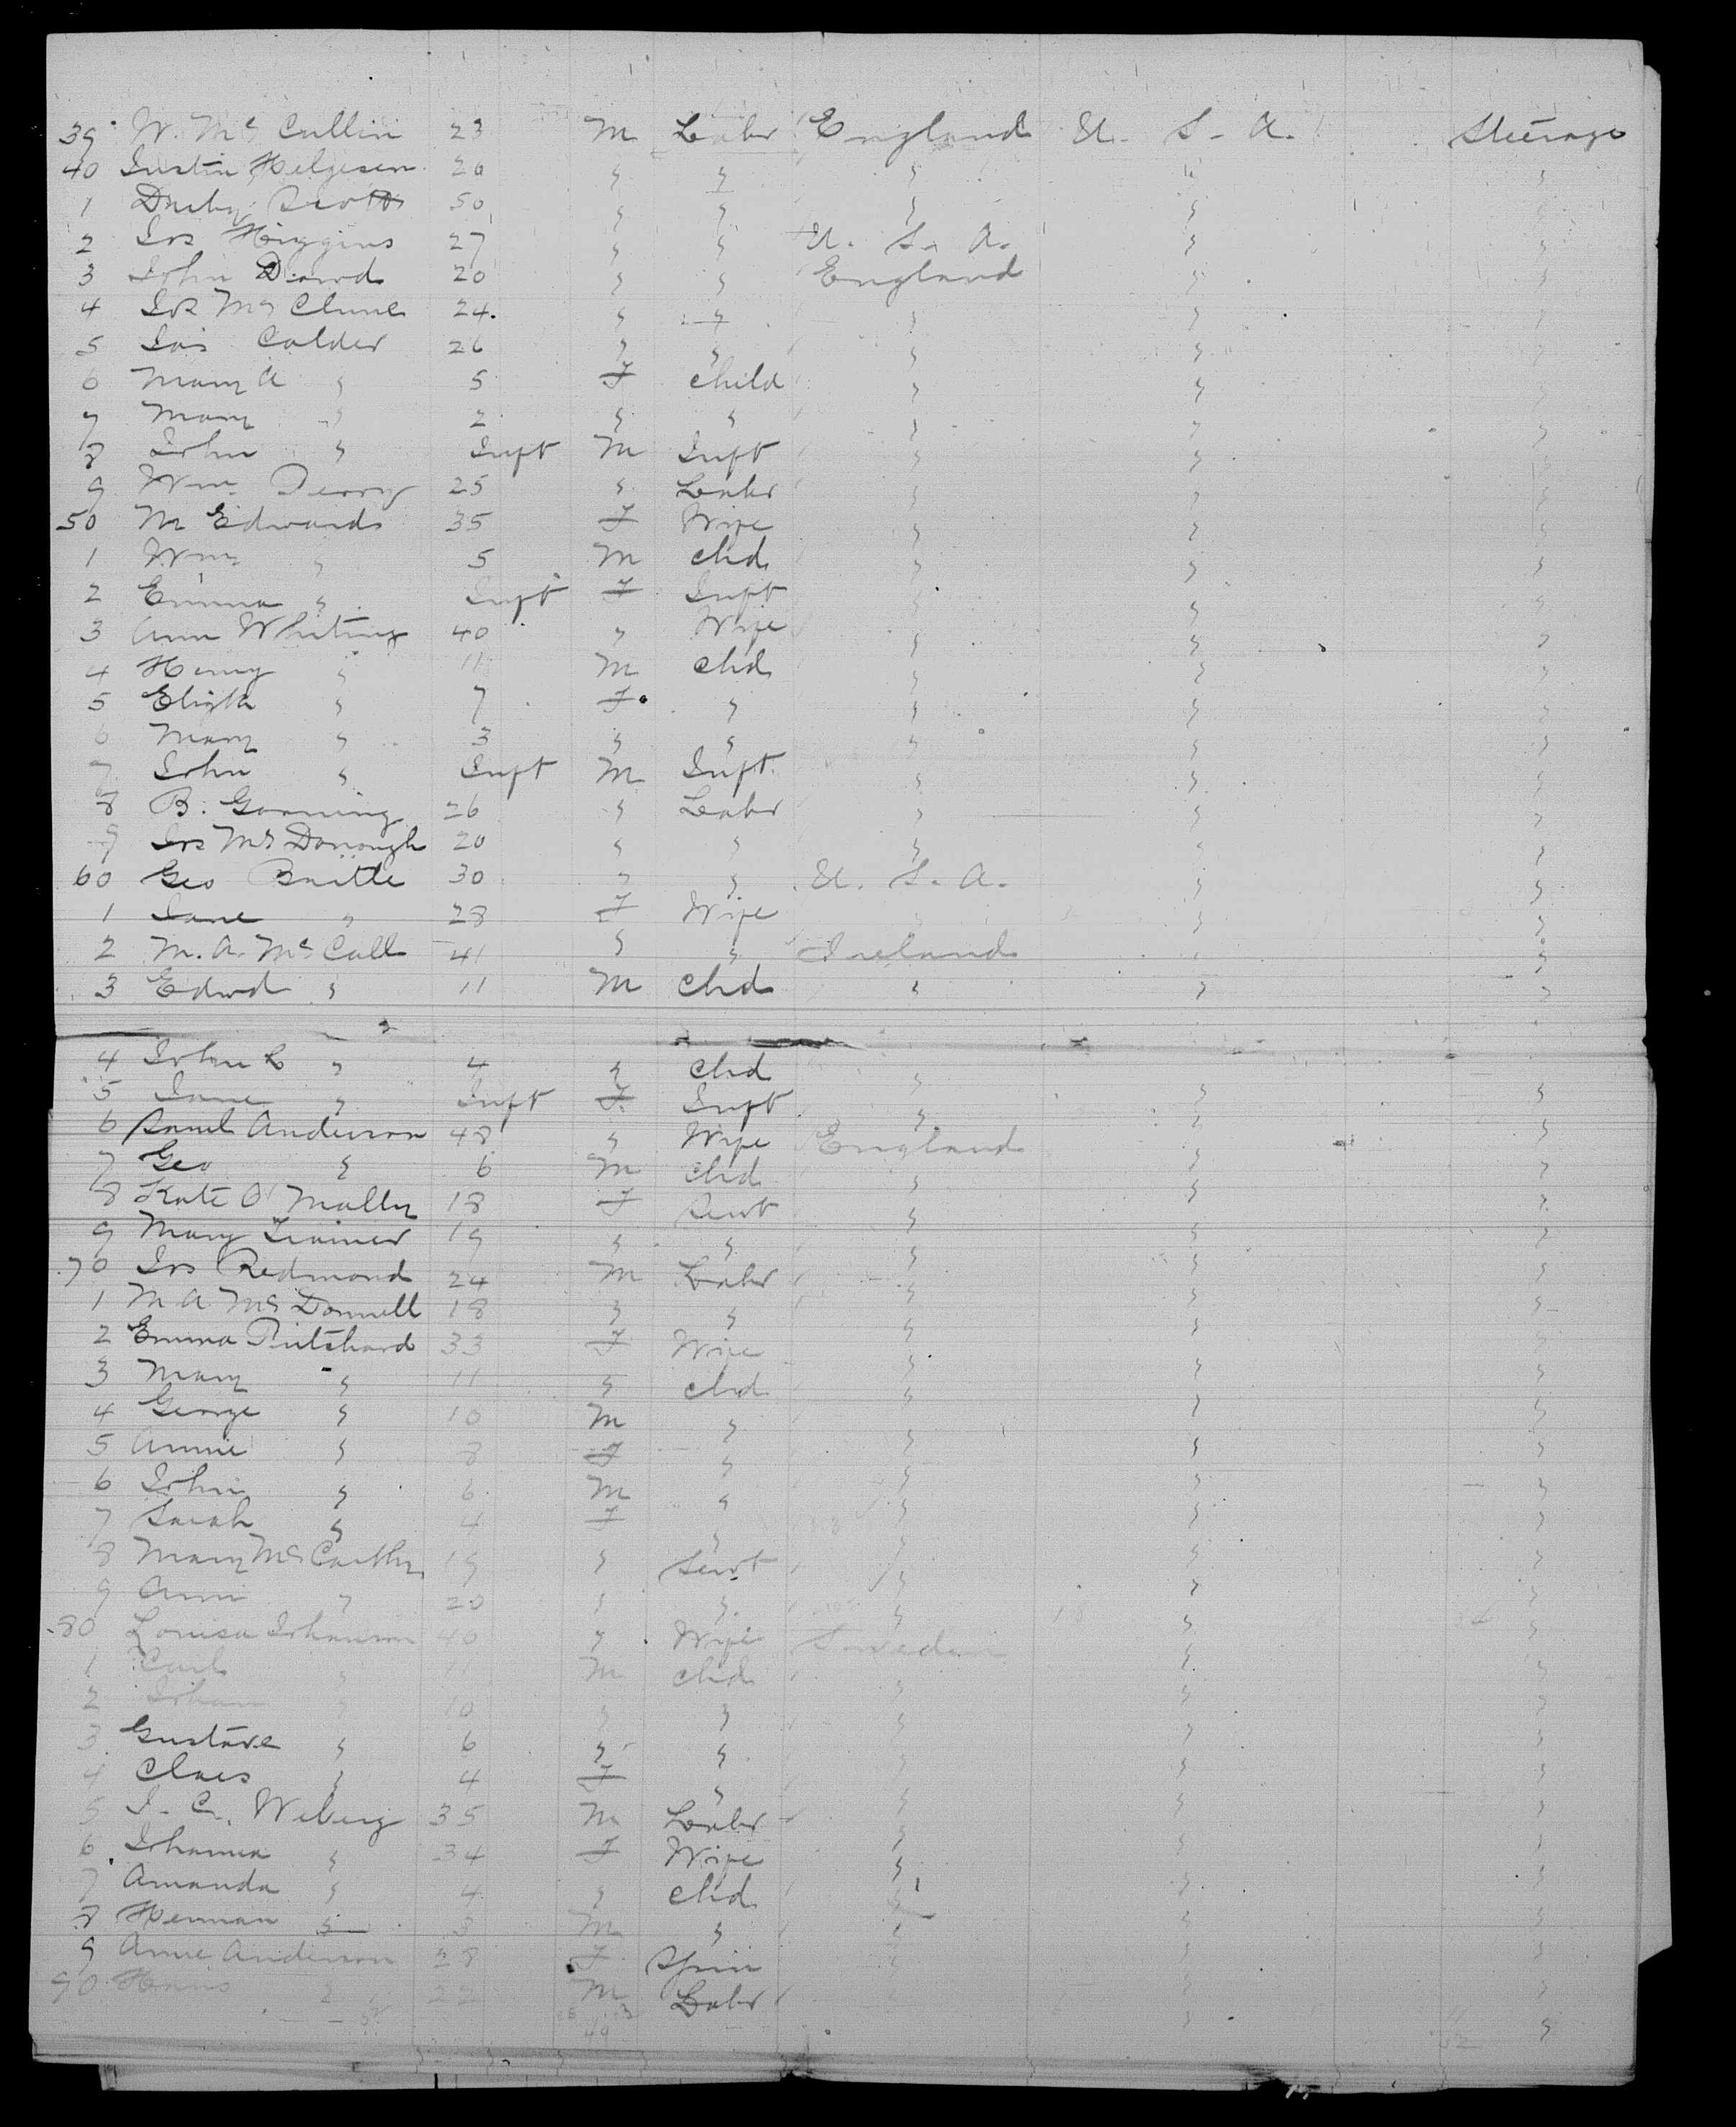 39 W. Mc Cullin 23 M Labr England U. S. A. Steerage
40 Justin Helgesen 20 " " " " "
1 Darby Scott 50 " " " " "
2 Jos Higgins 27 " " U. S. A. " "
3 John Dowd 20 " " England " "
4 Jos Mc Clune 24 " " " " "
5 Jas Calder 26 " " " " "
6 Mary A " 5 F Child " " "
7 Mary " 2 " " " " "
8 John " Inft M Inft " " "
9 Wm Perry 25 " Labr " " "
50 M Edwards 35 F Wife " " "
1 Wm " 5 M Chd " " "
2 Emma " Inft F Inft " " "
3 Ann Whiting 40 " Wife " " "
4 Henry " 11 M Chd " " "
5 Elizth " 7 F " " " "
6 Mary " 3 " " " " "
7 John " Inft M Inft " " "
8 B. Gonning 26 " Labr " " "
9 Jos Mc Donough 20 " " " " "
60 Geo 30 " " U. S. A. " "
1 Jane " 28 F Wife " " "
2 M. A. Mc Call 41 " " Ireland " "
3 Edwd " 11 M Chd " " "
4 John L " 4 " Chd "
5 Jane " Inft F Inft " " "
6 Saml Anderson 48 " Wife England " "
7 Geo " 6 M Chd " " "
8 Kate O'Malley 18 F Servt " " "
9 Mary Trainer 19 " " " " "
70 Jos Redmond 24 M Labr " " "
1 M A Mc Donnell 18 " " " " "
2 Emma Pritchard 33 F Wife " " "
3 Mary " 11 " Chd " " "
4 George " 10 M " " " "
5 Annie " 8 F " " " "
6 John " 6 M " " " "
7 Sarah " 4 F " " " "
8 Mary Mc Carthy 19 " Servt " " "
9 Ann " 20 " " " " "
80 Louisa Johanson 40 " Wife Sweden " "
1 Carl " 11 M Chd " " "
2 Johan " 10 " " " " "
3 Gustave " 6 " " " " "
4 Claes " 4 F " " " "
5 J. C. Weberg 35 M Labr " " "
6 Johanna " 34 F Wife " " "
7 Amanda " 4 " Chd " " "
8 Herman " 3 M " " " "
9 Anne Anderson 28 F Spin " " "
90 Hans " 22 M Labr " " "
49